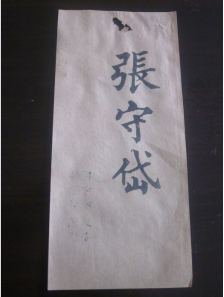 張守岱